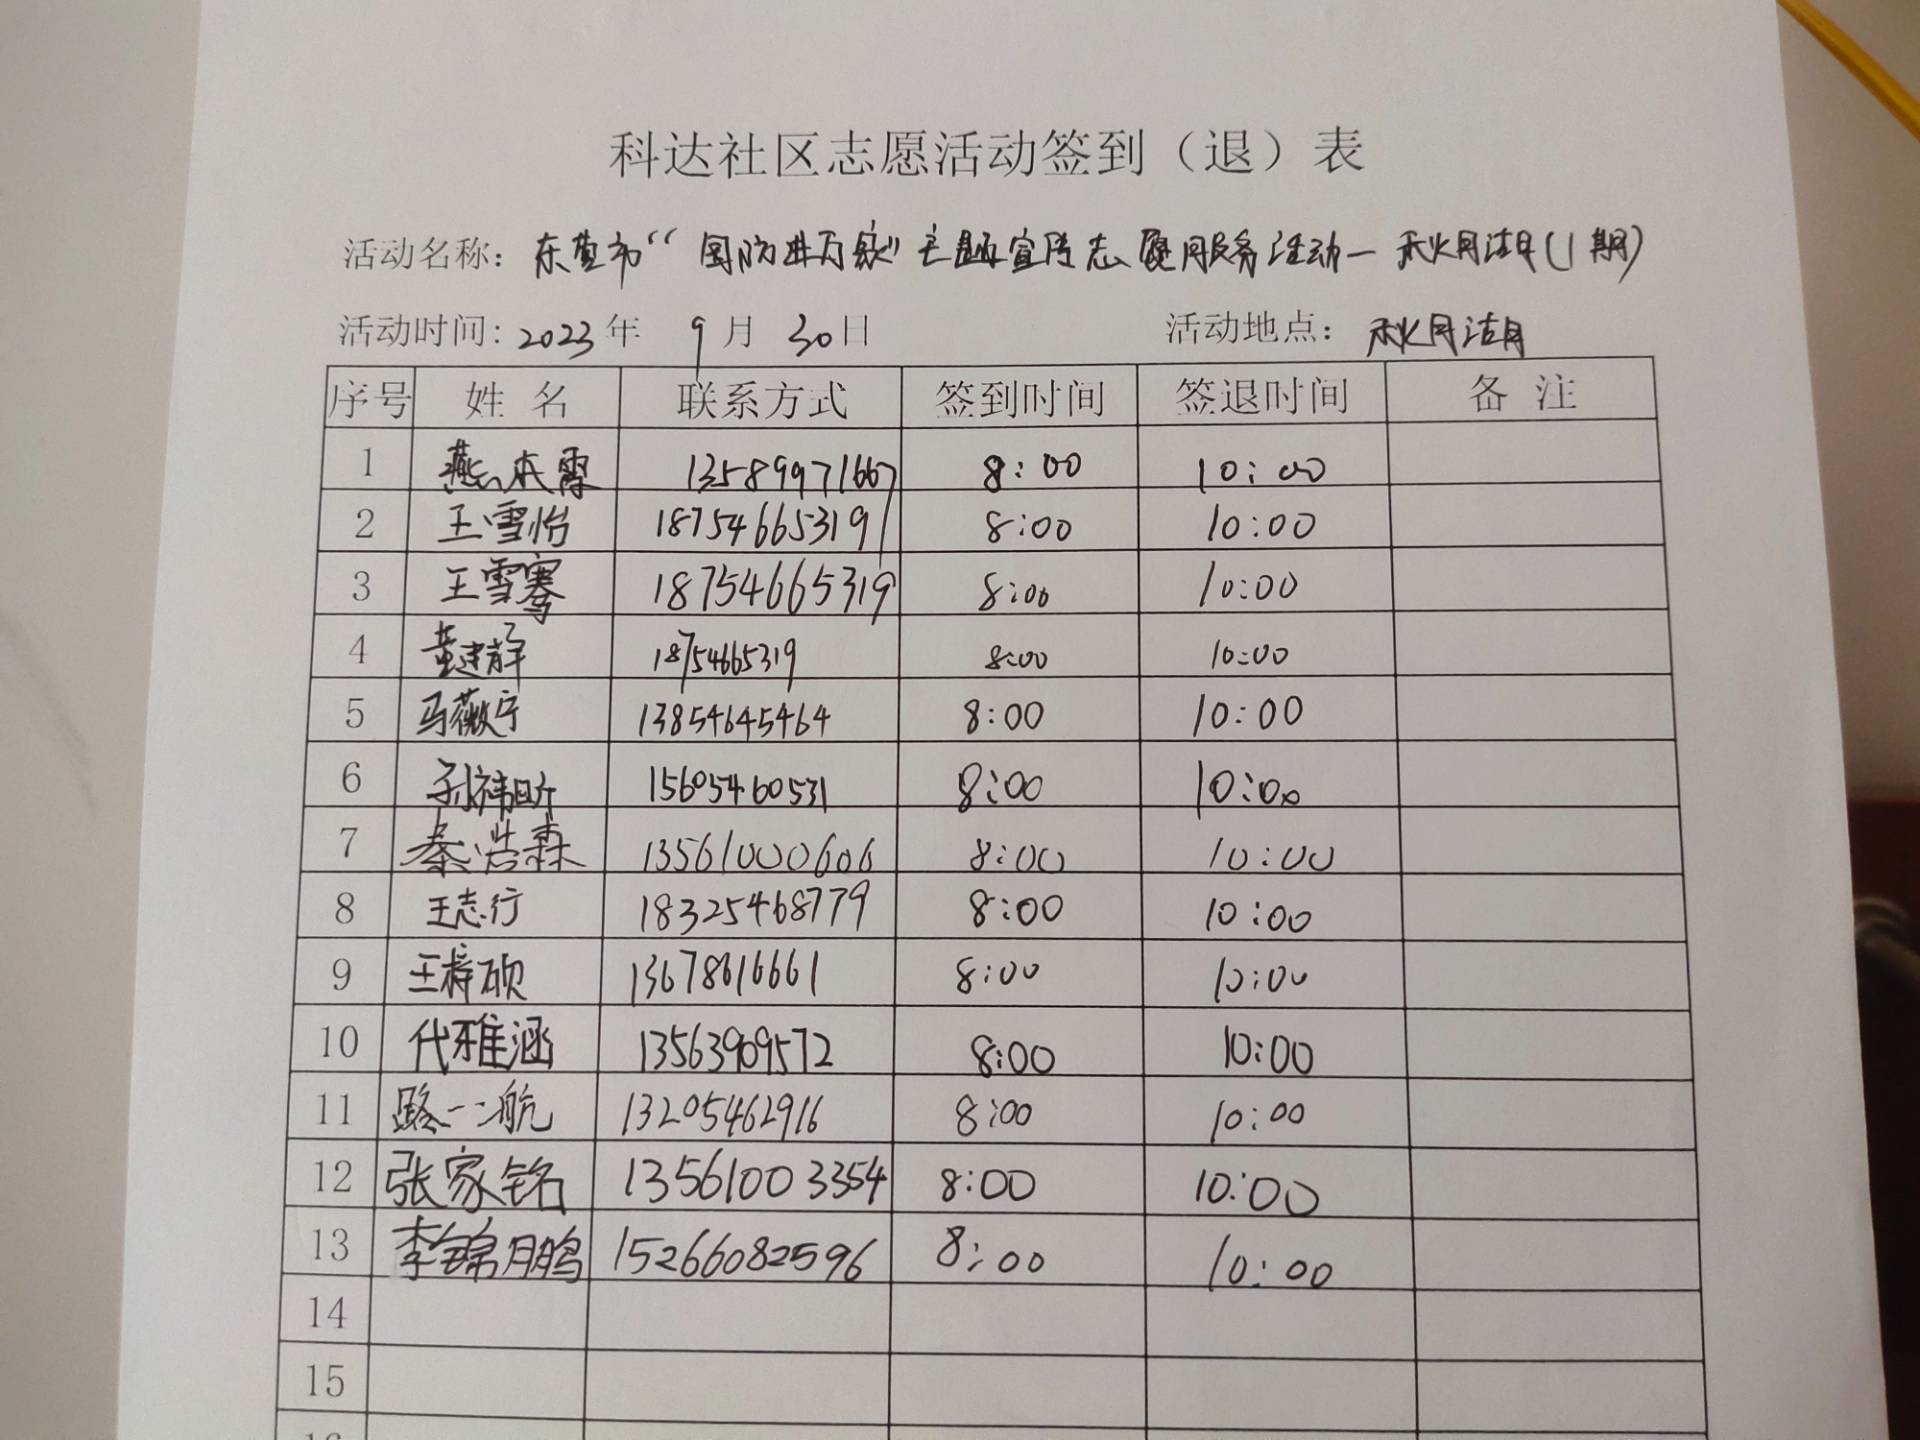 科达社区志愿活动签到（退）表
活动名称：东营市“国防进万家”主题宣传志愿服务活动—秋月湖（1期）
活动时间：2023年 9月 30日 活动地点：秋月湖
序号 姓 名 联系方式 签到时间 签退时间 备 注
1 燕本霖 13589971667 8:00 10:00
2 王雪怡 18754665319 8:00 10:00
3 王雪骞 18754665319 8:00 10:00
4 黄建静 18754665319 8:00 10:00
5 马薇宁 13854645464 8:00 10:00
6 孙祎昕 15605460531 8:00 10:00
7 秦浩森 13561000606 8:00 10:00
8 王志行 18325468779 8:00 10:00
9 王梓硕 13678616661 8:00 10:00
10 代雅涵 13563909572 8:00 10:00
11 路一航 13205462916 8:00 10:00
12 张家铭 13561003354 8:00 10:00
13 李锦鹏 15266082596 8:00 10:00
14
15